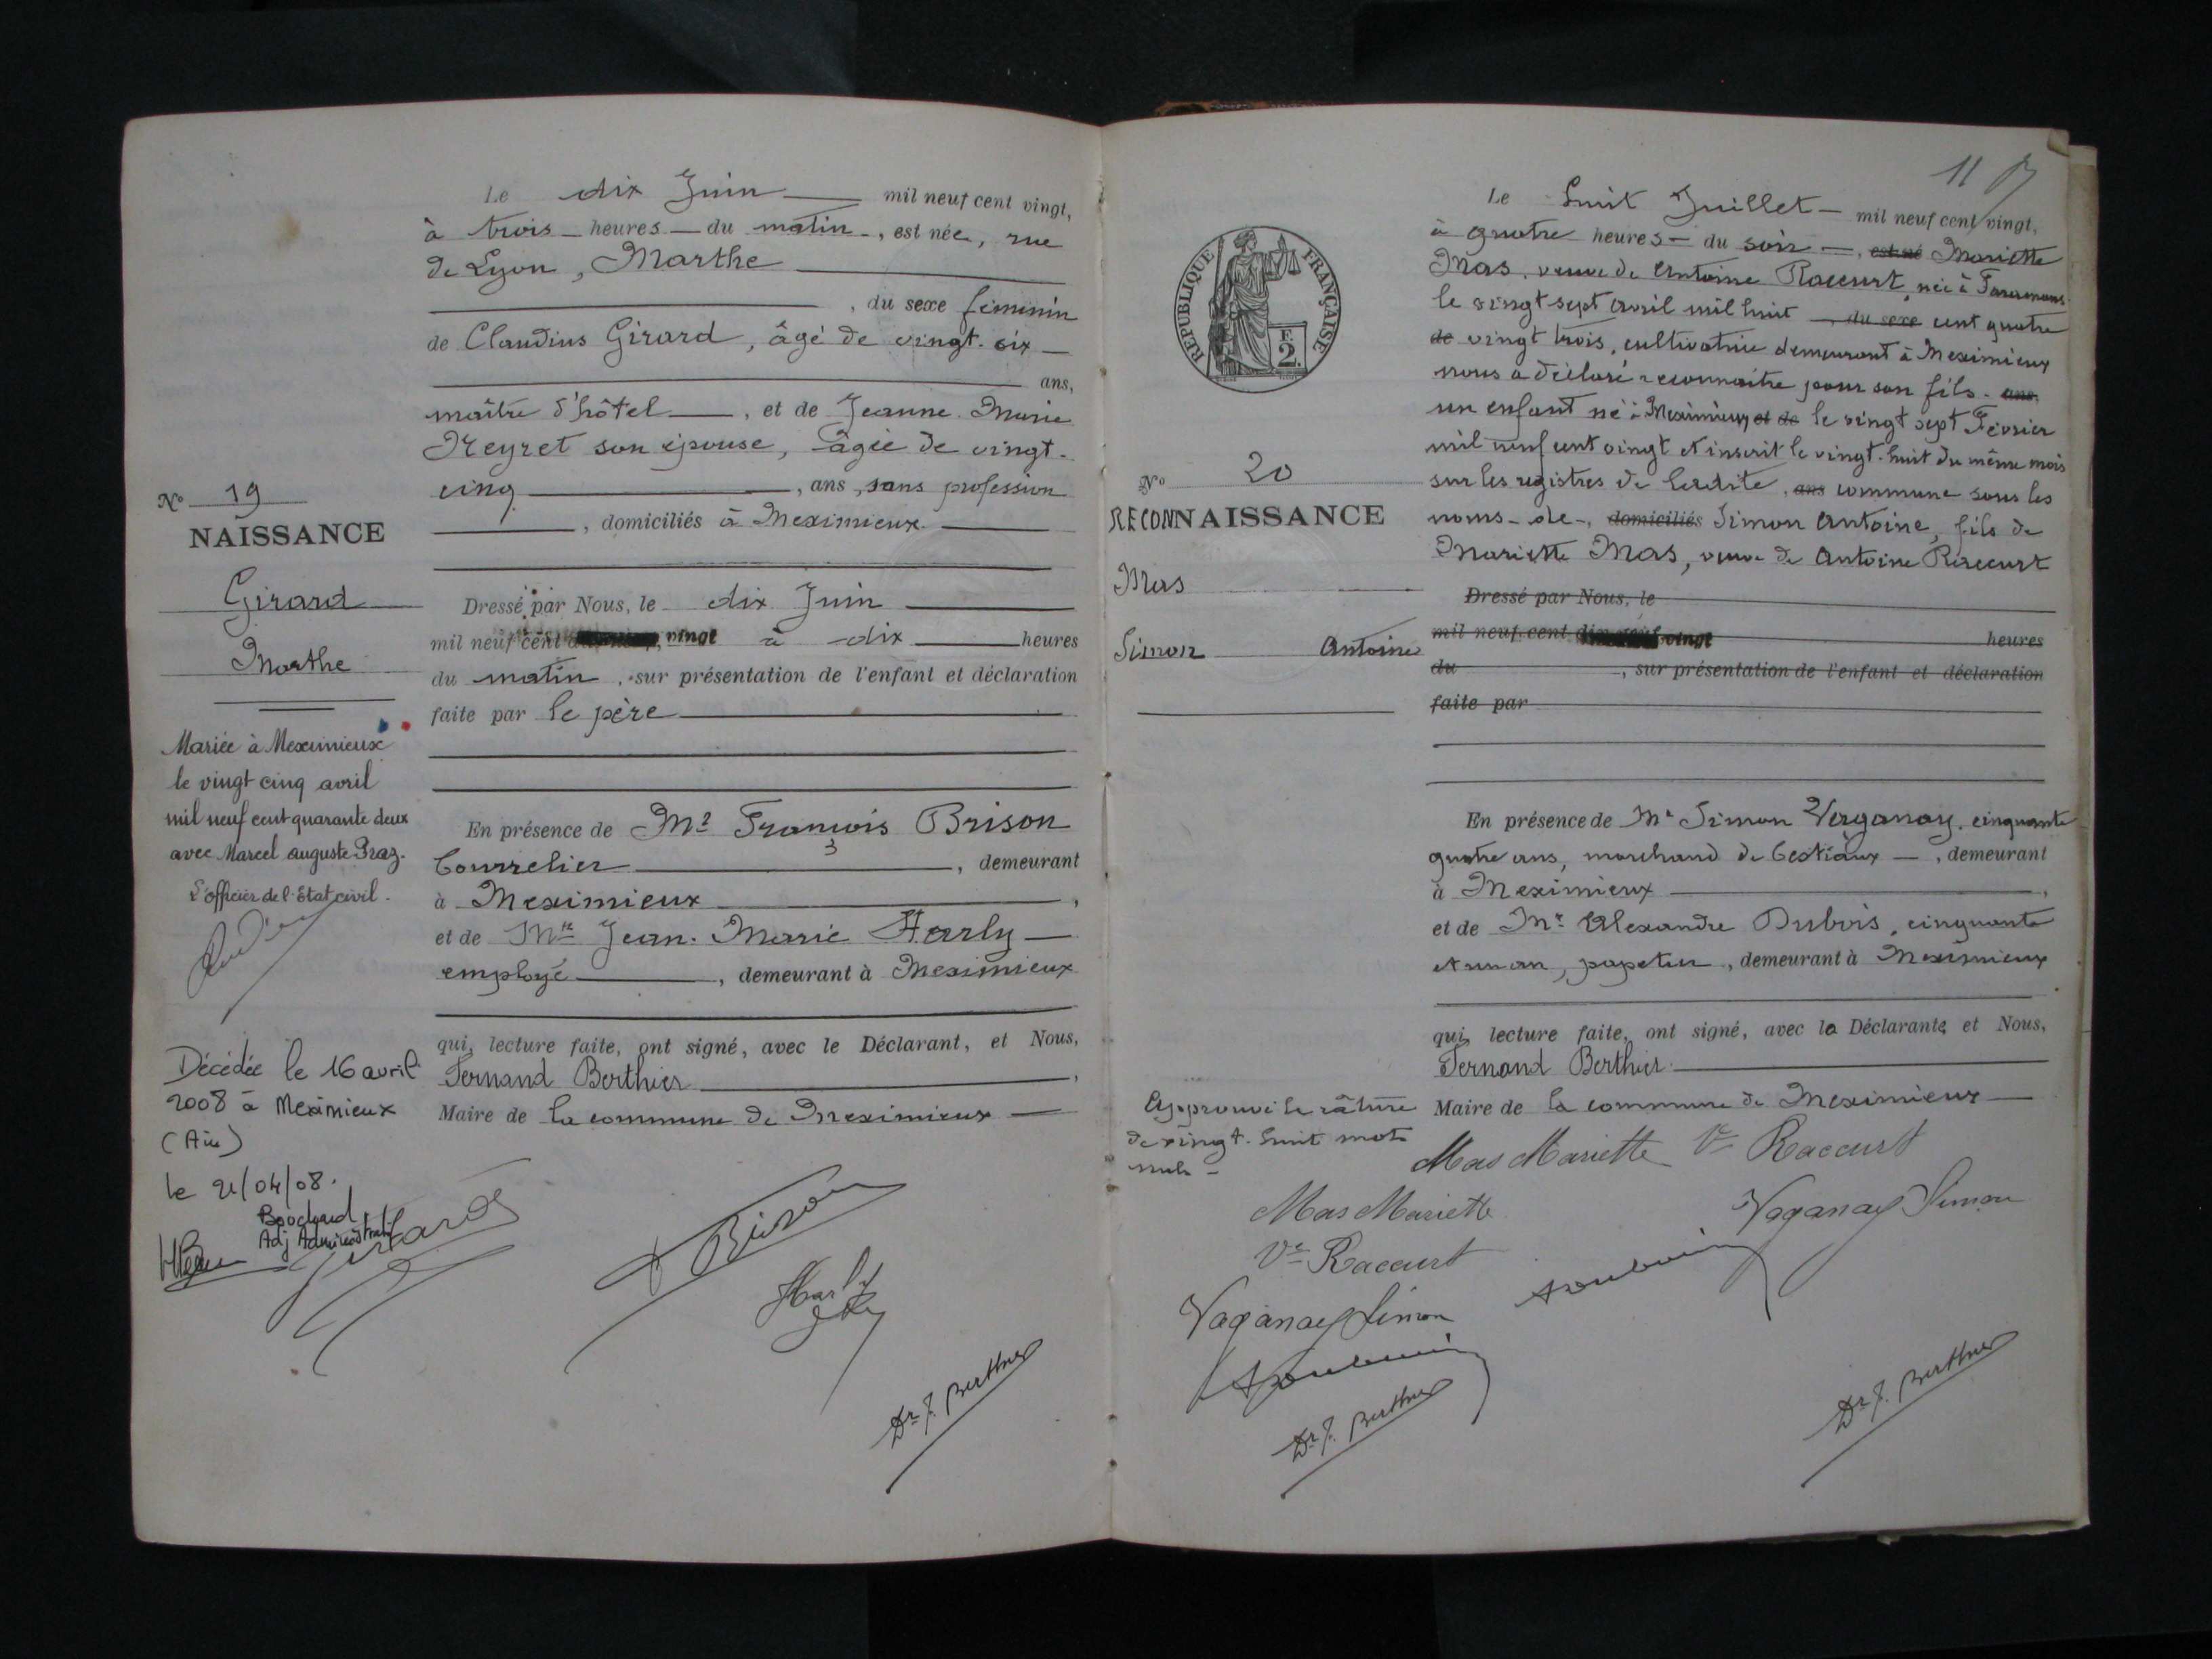 Le dix Juin mil neuf cent vingt,
à trois heures du matin, est née, rue
de Lyon, Marthe
, du sexe féminin
de Claudius Girard, âgé de vingt-six
ans,
maître d'hôtel, et de Jeanne Marie
Neyret son épouse, âgée de vingt-
cinq, ans, sans profession
, domiciliés à Meximieux
Nº 19
NAISSANCE
Girard
Marthe
Dressé par Nous, le dix Juin
mil neuf cent vingt à dix heures
du matin, sur présentation de l'enfant et déclaration
faite par le père
Mariée à Meximieux
le vingt cinq avril
mil neuf cent quarante deux
avec Marcel Auguste Praz.
L'officier de l'Etat civil.
En présence de Mr François Brison
bourrelier, demeurant
à Meximieux,
et de Mr Jean-Marie Harly
employé, demeurant à Meximieux
qui, lecture faite, ont signé, avec le Déclarant, et Nous,
Fernand Berthier,
Maire de la commune de Meximieux
Décédée le 16 avril
2008 à Meximieux
(Ain)
le 21/04/08.
Bouchard
Adj Administratif
Girard
Brison
Harly
Dr F. Berthier
11
RÉPUBLIQUE FRANÇAISE
F.
2.
Le huit Juillet mil neuf cent vingt,
à quatre heures du soir, est né Mariette
Mas, veuve de Antoine Raccurt, née à Faramans
le vingt sept avril mil huit du sexe cent quatre
de vingt trois, cultivatrice demeurant à Meximieux
nous a déclaré reconnaitre pour son fils. ans,
un enfant né à Meximieux et de le vingt sept Février
mil neuf cent vingt et inscrit le vingt-huit du même mois
sur les registres de ladite, ans commune sous les
noms de, domiciliés Simon Antoine, fils de
Mariette Mas, veuve de Antoine Raccurt
Nº 20
RECONNAISSANCE
Mas
Simon Antoine
Dressé par Nous, le
mil neuf cent dix-neuf vingt heures
du, sur présentation de l'enfant et déclaration
faite par
En présence de Mr Simon Vaganay, cinquante
quatre ans, marchand de bestiaux, demeurant
à Meximieux,
et de Mr Alexandre Dubois, cinquante
et un an, papetier, demeurant à Meximieux
qui, lecture faite, ont signé, avec la Déclarante et Nous,
Fernand Berthier
Maire de la commune de Meximieux
Approuvé le râture
de vingt-huit mots
nuls
Mas Mariette Ve Raccurt
Mas Mariette
Ve Raccurt
Vaganay Simon
Vaganay Simon
Dr F. Berthier
Dr F. Berthier